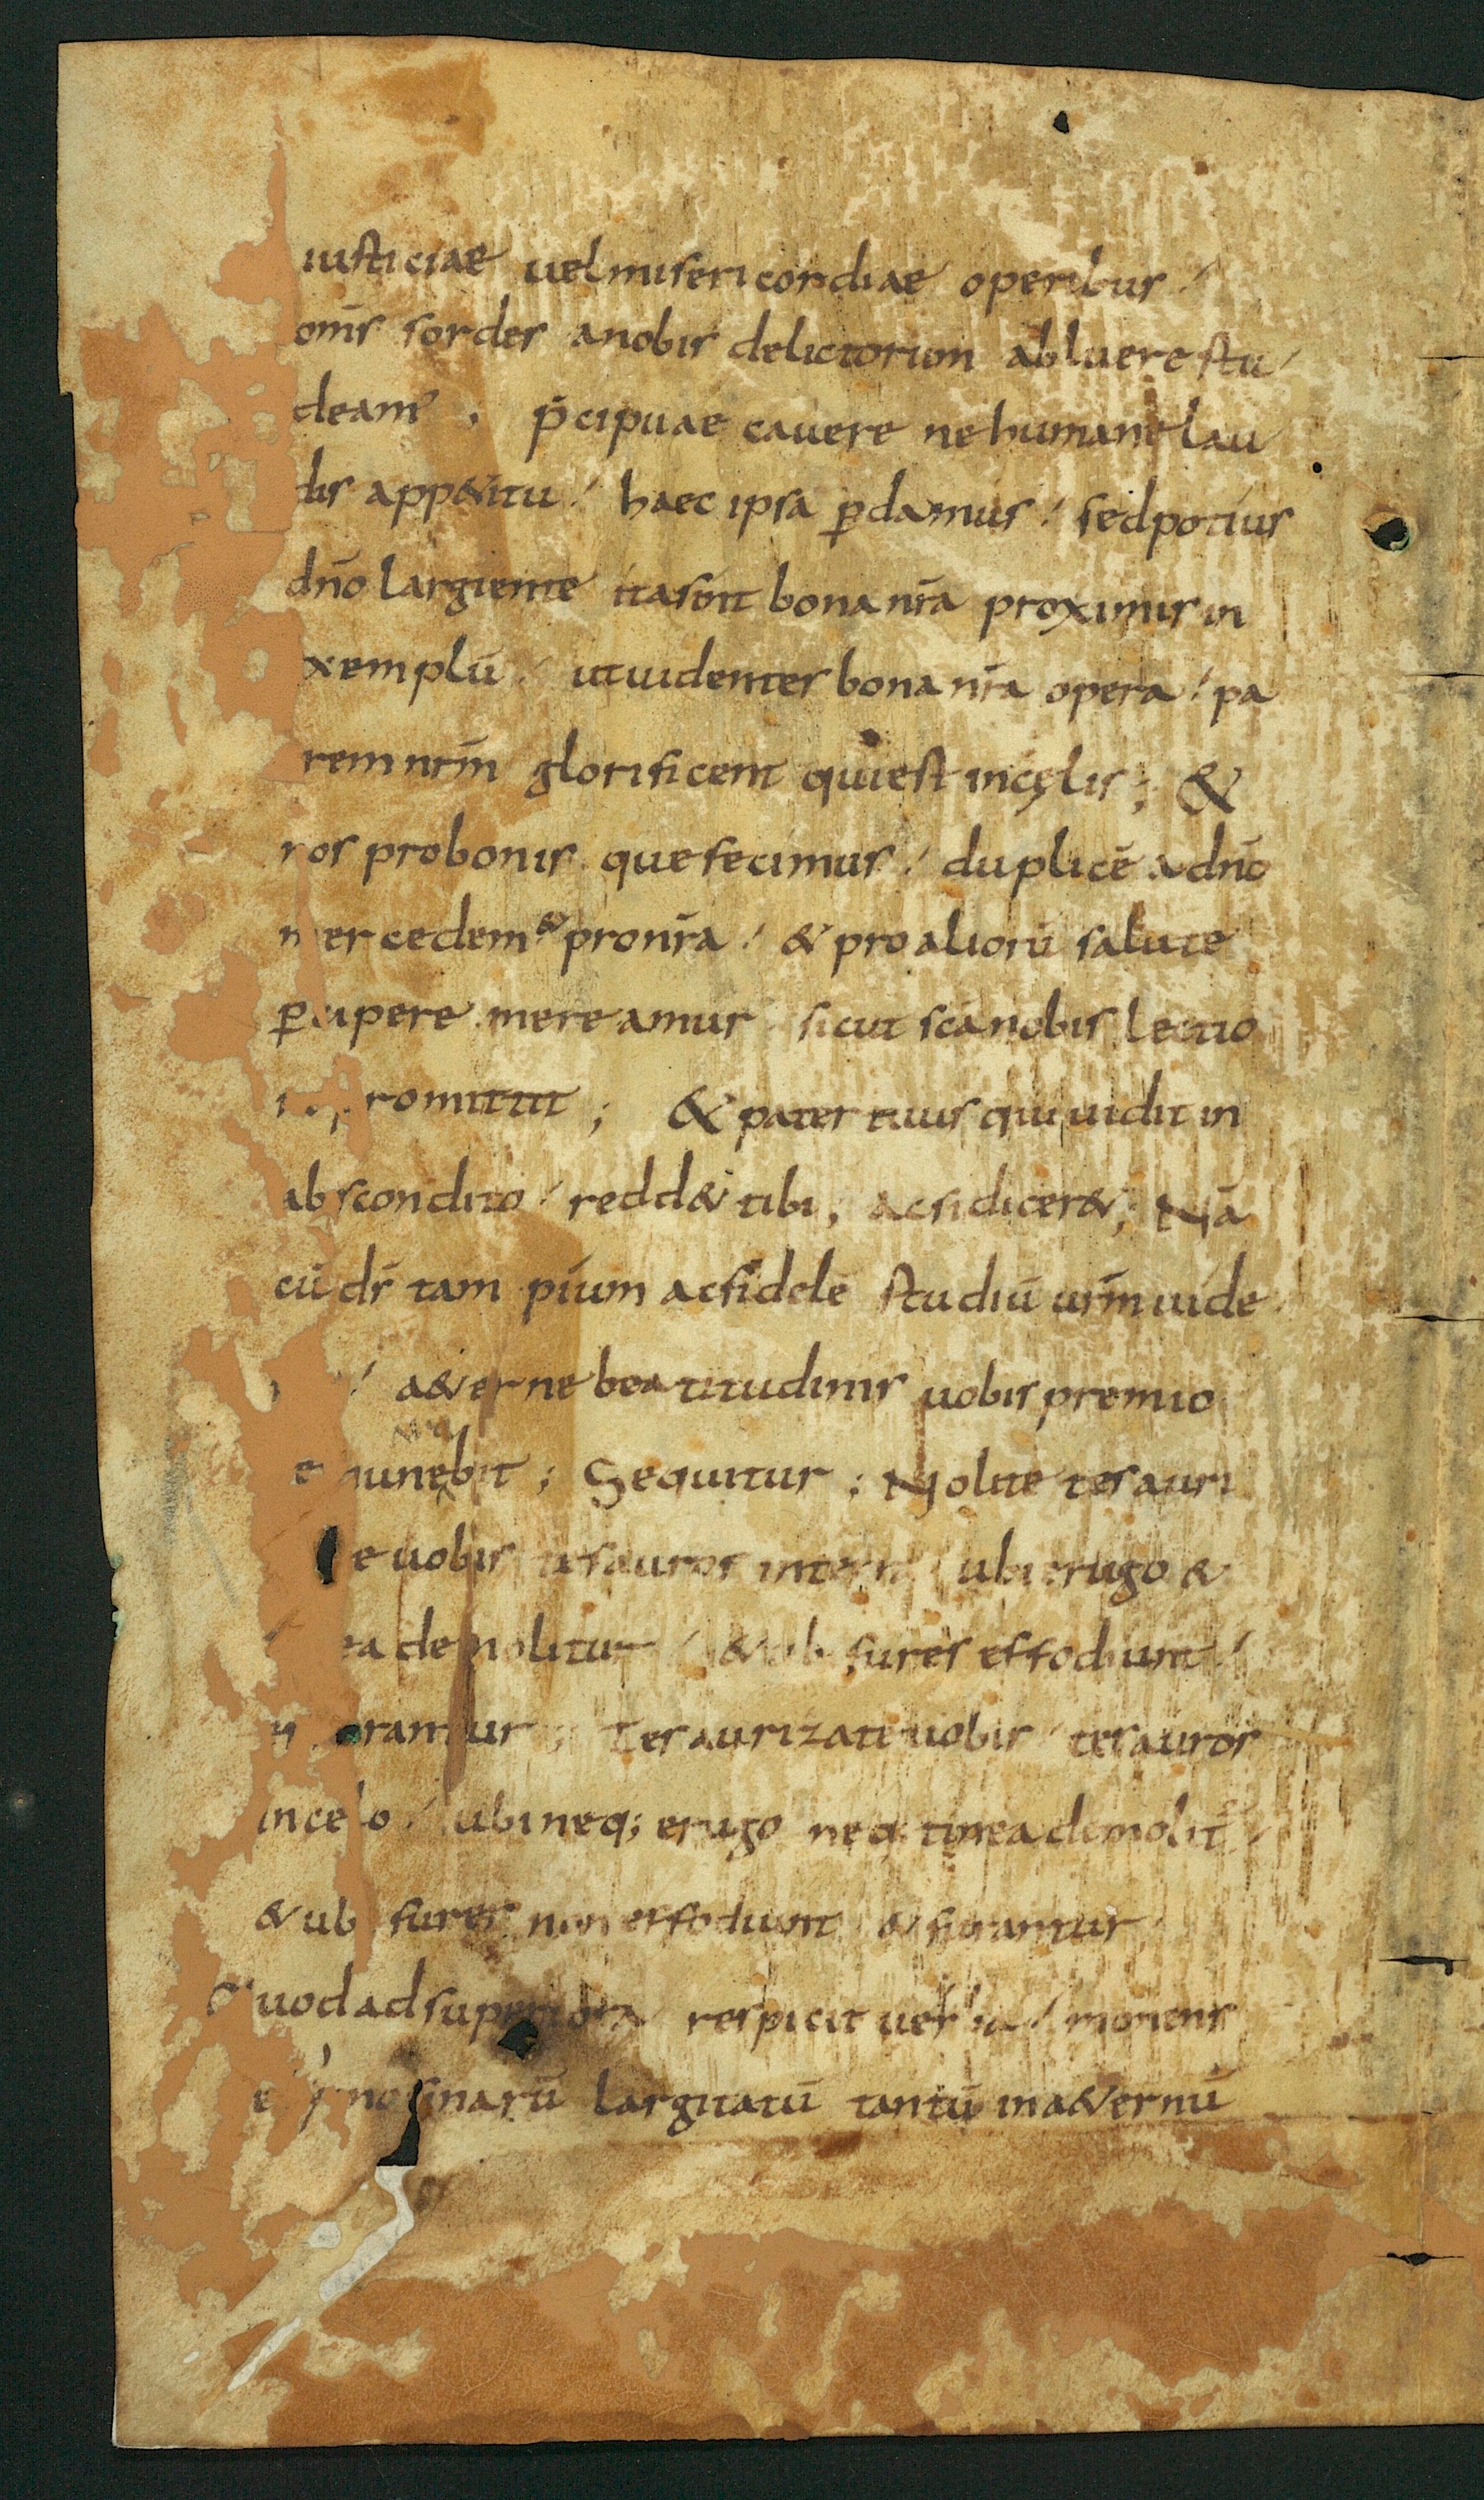 iusticiae uel misericordiae operibus /
om̄s sordes a nobis delictorum abluere stu/
deam᾿, p̄cipuae cauere ne humane lau
dis app&itu / haec ipsa ꝑdamus / sed potius
dn̄o largiente ita sint bona nr̄a proximis in
xemplū / ut uidentes bona nr̄a opera / pa
rem nr̄m glorificent qui est in cęlis ; &
nos pro bonis que fecimus / duplicē a dn̄o
mercedem & pro nr̄a / & pro aliorū salute
ꝑcipere mereamur sicut sc̄a nobis lectio
romittit ; & pater tuus qui uidit in
abscondito / redd& tibi, ac si dicer&; Nā
cū ds̄ tam pium ac fidele studiū ur̄m uide
/ a&erne beatitudinis uobis premio
munebit ; Sequitur ; Nolite tesauri
e uobis tesauros in terra ubi erugo &
ea demolitur / & ub fures effodiunt /
urantur ; Tesaurizate uobis tesauros
in celo / ubi neq; erugo neq; tinea demolit᾿ /
& ub fures non effodiunt & furantur
Quod ad superiora respicit uerba / monens
elymosinarū largitatū tantū in a&ernū